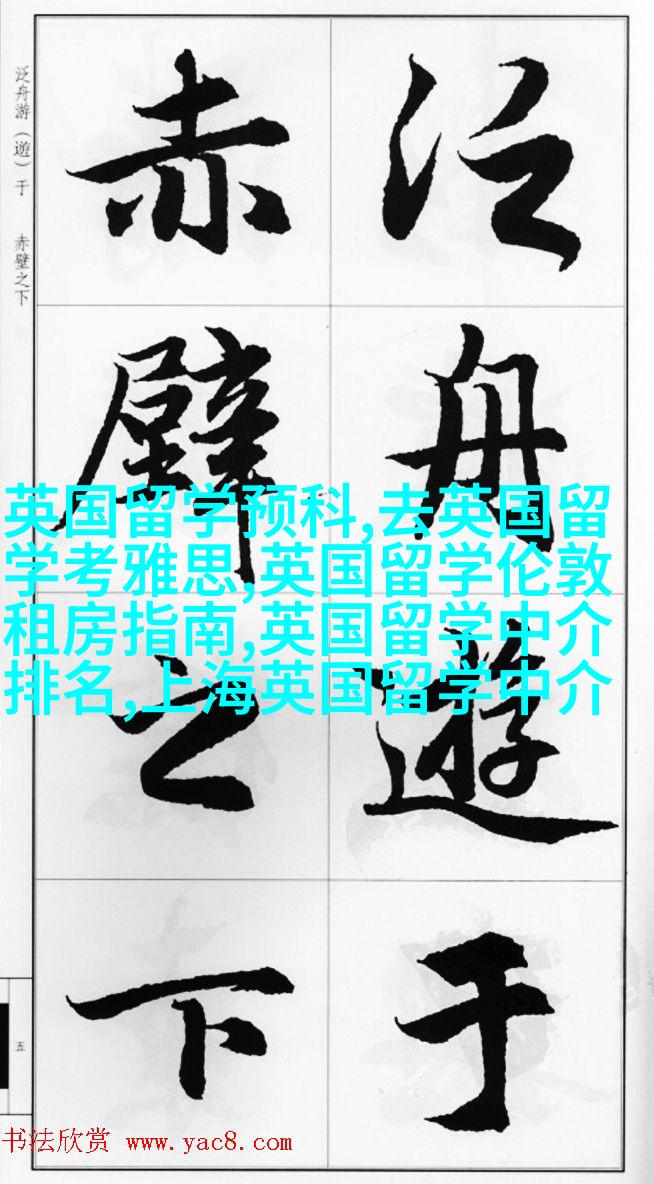 泛舟遊于
赤壁之下
泛舟游（遊）于　赤壁之下
英国留学预科,去英国留
学考雅思,英国留学伦敦
租房指南,英国留学中介
排名,上海英国留学中介
五
书法欣赏 www.yac8.com